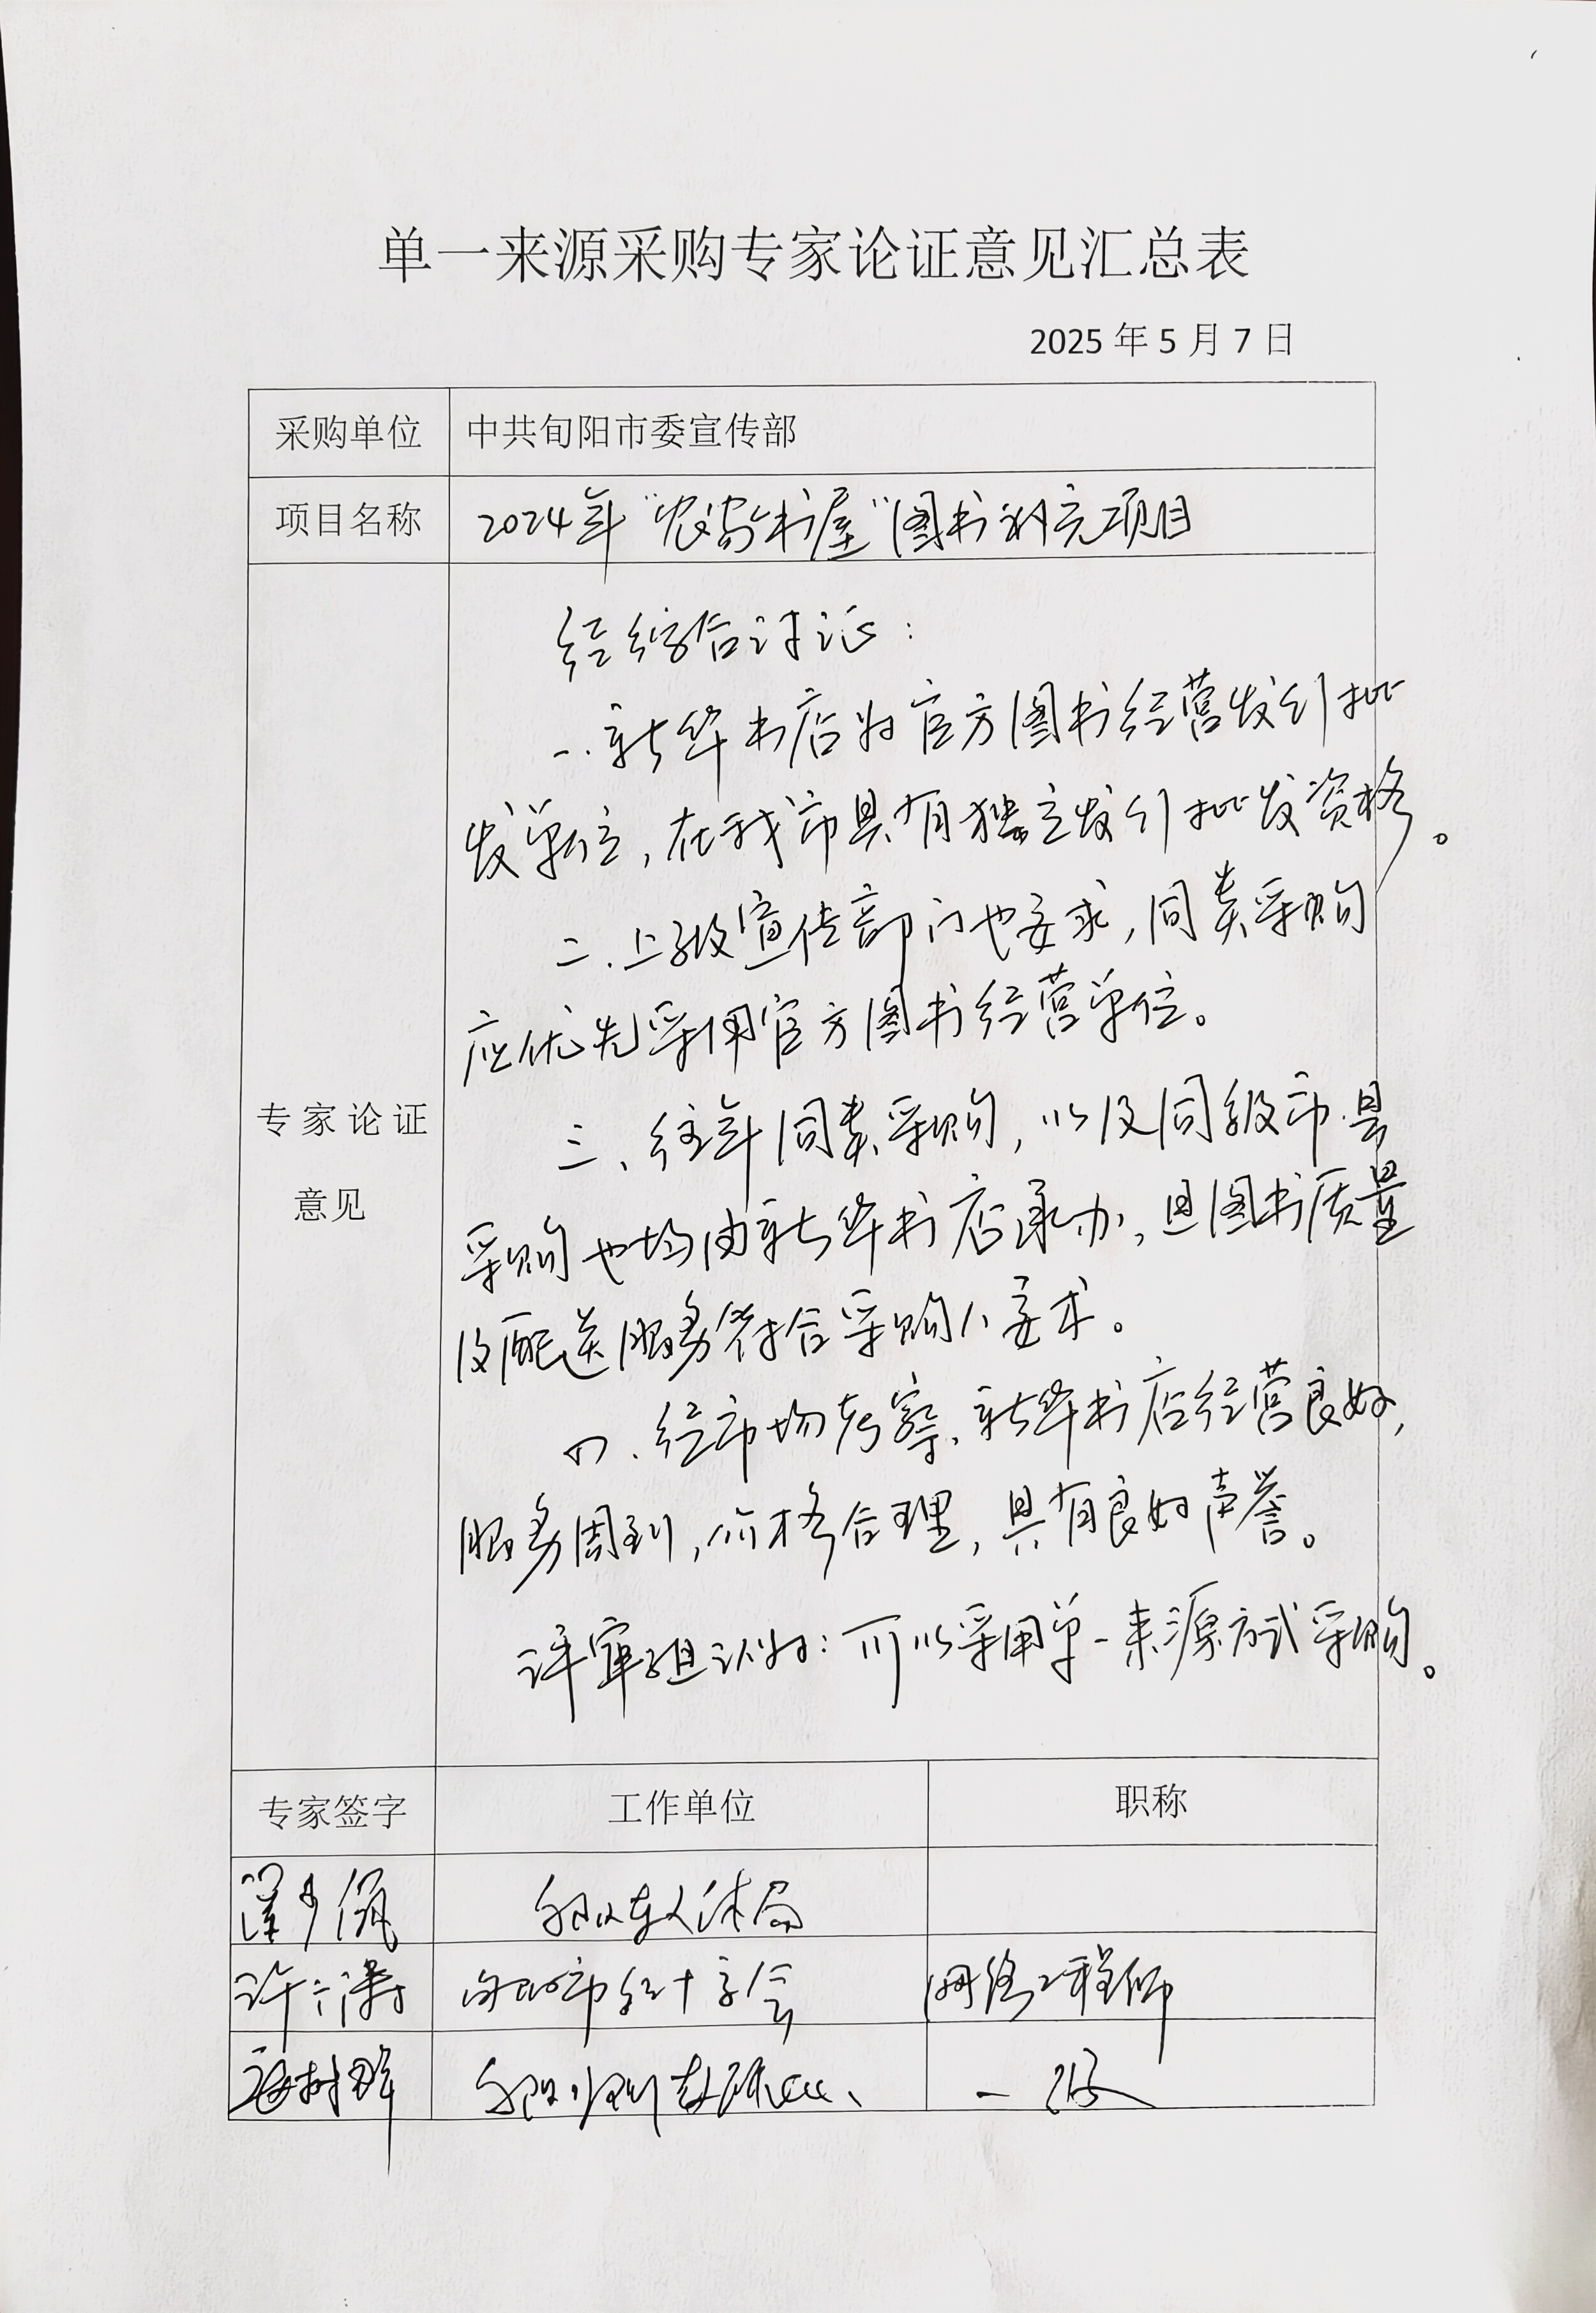 单一来源采购专家论证意见汇总表
2025年5月7日
采购单位 中共旬阳市委宣传部
项目名称 2024年“农家书屋”图书补充项目
经综合讨论:
一.新华书店为官方图书经营发行批
发单位,在我市具有独立发行批发资格。
二.上级宣传部门也要求,同类采购
应优先采用官方图书经营单位。
三、往年同类采购,以及同级市.县
专家论证
采购也均由新华书店承办,且图书质量
意见
及配送服务符合采购人要求。
四.经市场考察、新华书店经营良好,
服务周到,价格合理,具有良好声誉。
评审组认为:可以采用单一来源方式采购。
专家签字 工作单位 职称
教体局
许 旬阳市红十字会 网络工程师
树 一级